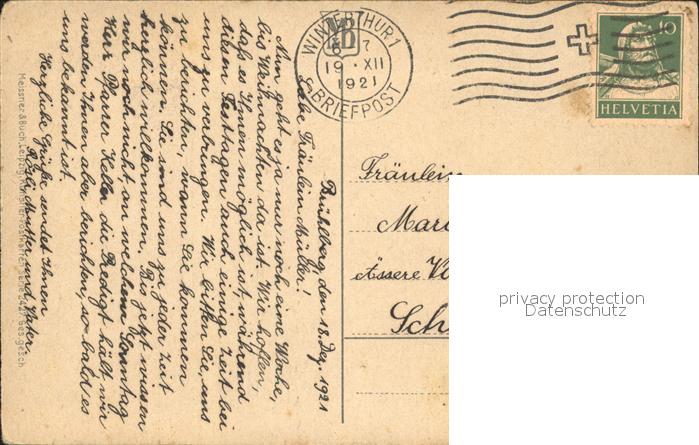 Bühlberg, den 18. Dez. 1921
Liebe Fräulein Müller!
Nun geht es ja nur noch eine Woche,
bis Weihnachten da ist. Wir hoffen,
daß es Ihnen möglich ist, während
diesen Festtagen auch einige Zeit bei
uns zu verbringen. Wir bitten Sie, uns
zu berichten, wann Sie kommen
können. Sie sind uns zu jeder Zeit
herzlich willkommen. Bis jetzt wissen
wir noch nicht, an welchem Sonntag
Herr Pfarrer Keller die Predigt hält wir
werden Ihnen aber berichten, so bald es
uns bekannt ist.
Herzliche Grüße sendet Ihnen
Mutter und Vater.
Meissner & Buch, Leipzig, Künstler-Postkarten Serie 2427 Ges. gesch.
WINTERTHUR 1
19 · XII
1921
BRIEFPOST
10
HELVETIA
Fräulein
Ässere
Sch
privacy protection
Datenschutz